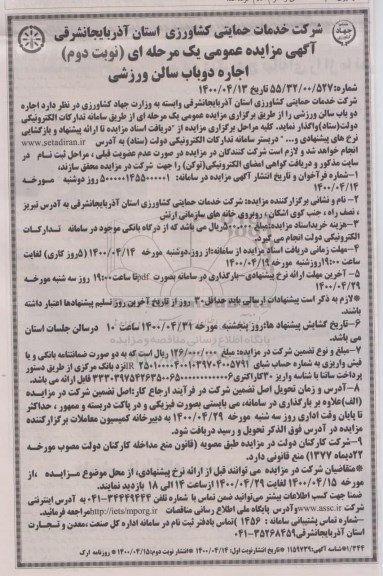 شرکت خدمات حمایتی کشاورزی استان آذربایجانشرقی
آگهی مزایده عمومی یک مرحله ای (نوبت دوم)
اجاره دوباب سالن ورزشی
شماره:۵۵/۳۲/۰۰/۵۲۷ تاریخ ۱۴۰۰/۰۴/۱۳
شرکت خدمات حمایتی کشاورزی استان آذربایجانشرقی وابسته به وزارت جهاد کشاورزی در نظر دارد اجاره
دو باب سالن ورزشی را از طریق برگزاری مزایده عمومی یک مرحله ای از طریق سامانه تدارکات الکترونیکی
دولت(ستاد)واگذار نماید. کلیه مراحل برگزاری مزایده از دریافت اسناد مزایده تا ارائه پیشنهاد و بازگشایی
نرخ های پیشنهادی و... دربستر سامانه تدارکات الکترونیکی دولت (ستاد) به آدرس www.setadiran.ir
انجام خواهد شد و لازم است شرکت کنندگان در مزایده در صورت عدم عضویت قبلی ، مراحل ثبت نام در
سایت مذکور و دریافت گواهی امضای الکترونیکی(توکن) را جهت شرکت در مزایده محقق سازند،
۱–شماره فراخوان و تاریخ انتشار آگهی مزایده در سامانه: ۵۰۰۰۰۰۱۴۵۵۰۰۰۰۰۱ روز دوشنبه مورخه
۱۴۰۰/۰۴/۱۴
۲– نام و نشانی برگزارکننده مزایده: شرکت خدمات حمایتی کشاورزی استان آذربایجانشرقی به آدرس تبریز
، نصف راه ، جنب کوی اشکان ، روبروی خانه های سازمانی ارتش
۳–هزینه خریداسناد مزایده: مبلغ ۵۰۰.۰۰۰ریال می باشد که از درگاه بانکی موجود در سامانه تدارکات
الکترونیکی دولت انجام می گیرد.
۴–مهلت زمانی دریافت اسناد مزایده از سامانه:از روز،دوشنبه مورخه ۱۴۰۰/۰۴/۱۴ (۵روز کاری) لغایت
ساعت ۱۹:۰۰روزشنبه مورخه ۱۴۰۰/۰۴/۱۹
۵– آخرین مهلت ارائه نرخ پیشنهادی–بارگذاری در سامانه بصورت pdf.تا ساعت ۱۹:۰۰ روز سه شنبه مورخه
۱۴۰۰/۰۴/۲۹
*لازم به ذکر است پیشنهادات ارسالی باید حداقل ۳۰ روز از تاریخ آخرین روز تسلیم پیشنهادها اعتبار داشته
باشند.
۶–تاریخ گشایش پیشنهاد ها:روز پنجشنبه مورخه ۱۴۰۰/۰۴/۳۱ ساعت ۱۰ درسالن جلسات استان
می باشد.
۷–مبلغ و نوع تضمین شرکت در مزایده: مبلغ ۱۲۶/۰۰۰/۰۰۰ ریال است که به دو صورت ضمانتنامه بانکی و یا
فیش واریزی به شماره حساب شبای نزد بانک مرکزی از طریق دستور
پرداخت ساتنا با شناسه واریز ۳۰کاراکتری قابل ارائه می باشد.
۸–آدرس و زمان تحویل اصل تضمین شرکت در فرآیند ارجاع کار:اصل تضمین شرکت در مزایده
(الف)علاوه بر بارگذاری در سامانه، می بایستی بصورت فیزیکی و در پاکت دربسته و ممهور ، حداکثر
تا پایان وقت اداری روز سه شنبه مورخه ۱۴۰۰/۰۴/۲۹ به دبیرخانه کمیسیون معاملات برگزارکننده
مزایده در آدرس فوق الذکر تحویل و رسید دریافت شود.
۹–شرکت کارکنان دولت در مزایده طبق مصوبه (قانون منع مداخله کارکنان دولت مصوب مورخه
۲۲دیماه ۱۳۷۷) منع قانونی دارد.
*متقاضیان شرکت در مزایده می توانند قبل از ارائه نرخ پیشنهادی، از محل موضوع مزایده ، از
مورخه ۱۴۰۰/۰۴/۱۵ لغایت ۱۴۰۰/۰۴/۲۹ ازساعت ۱۴ الی ۱۸ بازدید نمایند.
ضمنا جهت کسب اطلاعات بیشتر می‌توانید ضمن تماس با شماره تلفن ۰۴۱-۳۴۴۴۹۴۴۴ به آدرس اینترنتی
شرکت www.assc.ir وآدرس پایگاه ملی اطلاع رسانی مناقصات http://iets/mporg.ir مراجعه فرمائید.
–شماره تماس پشتیبانی سامانه : ۱۴۵۶ )تماس بادفتر ثبت نام در سامانه اداره کل صنعت ،معدن و تجارت
استان آذربایجانشرقی ۰۴۱-۳۵۲۶۸۴۵۹ می باشد.
۱/۳۴۲ *شناسه آگهی: ۱۱۵۹۷۳۹ *تاریخ انتشار نوبت اول: ۱۴۰۰/۰۴/۱۴ *انتشار نوبت دوم: ۱۴۰۰/۰۴/۱۵ * روزنامه ارک